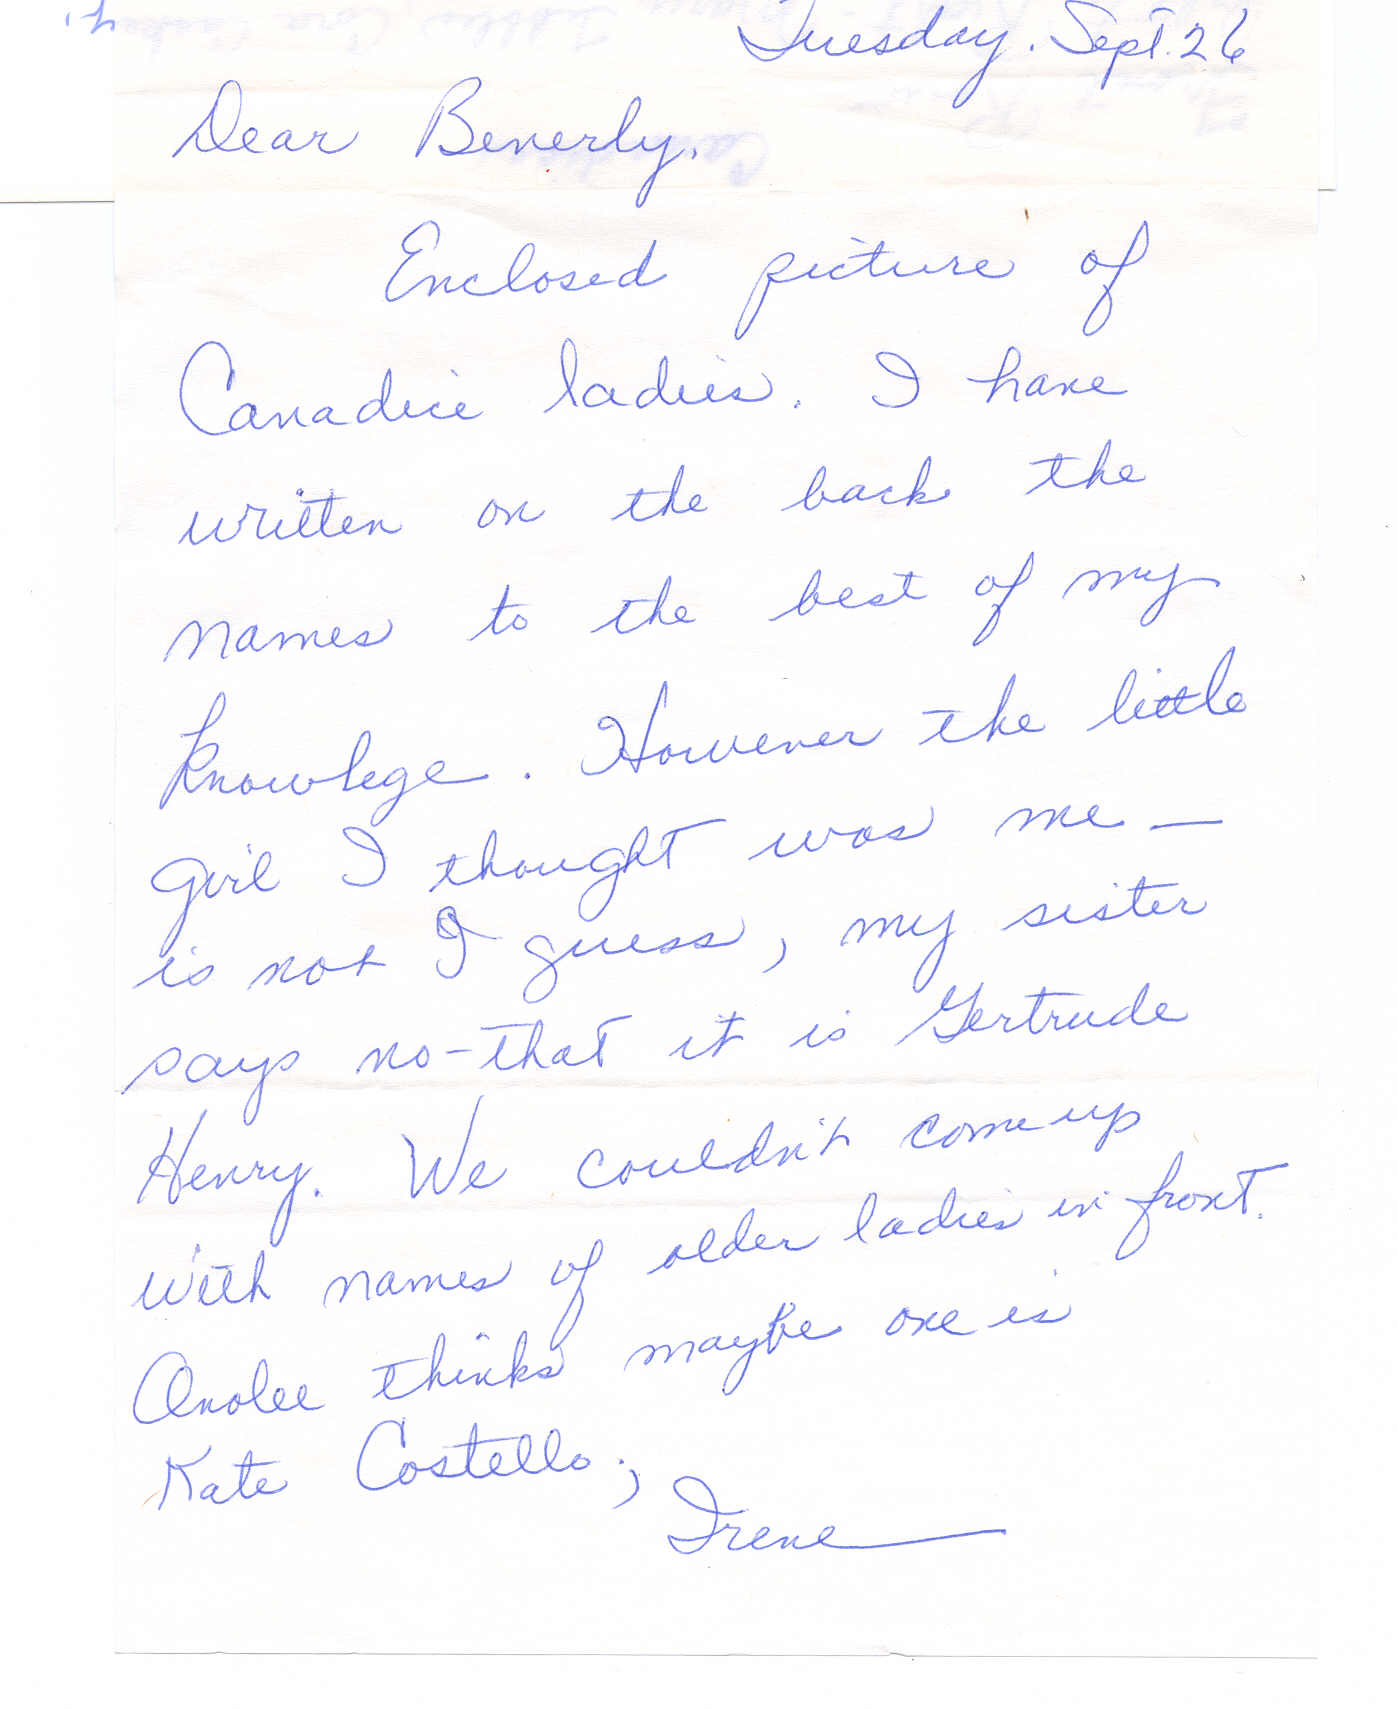 Tuesday. Sept. 26
Dear Beverly,
Enclosed picture of
Canadice ladies. I have
written on the back the
names to the best of my
knowlege. However the little
girl I thought was me —
is not I guess, my sister
says no - that it is Gertrude
Henry. We couldn't come up
with names of older ladies in front.
Anolee thinks maybe one is
Kate Costello,
Irene